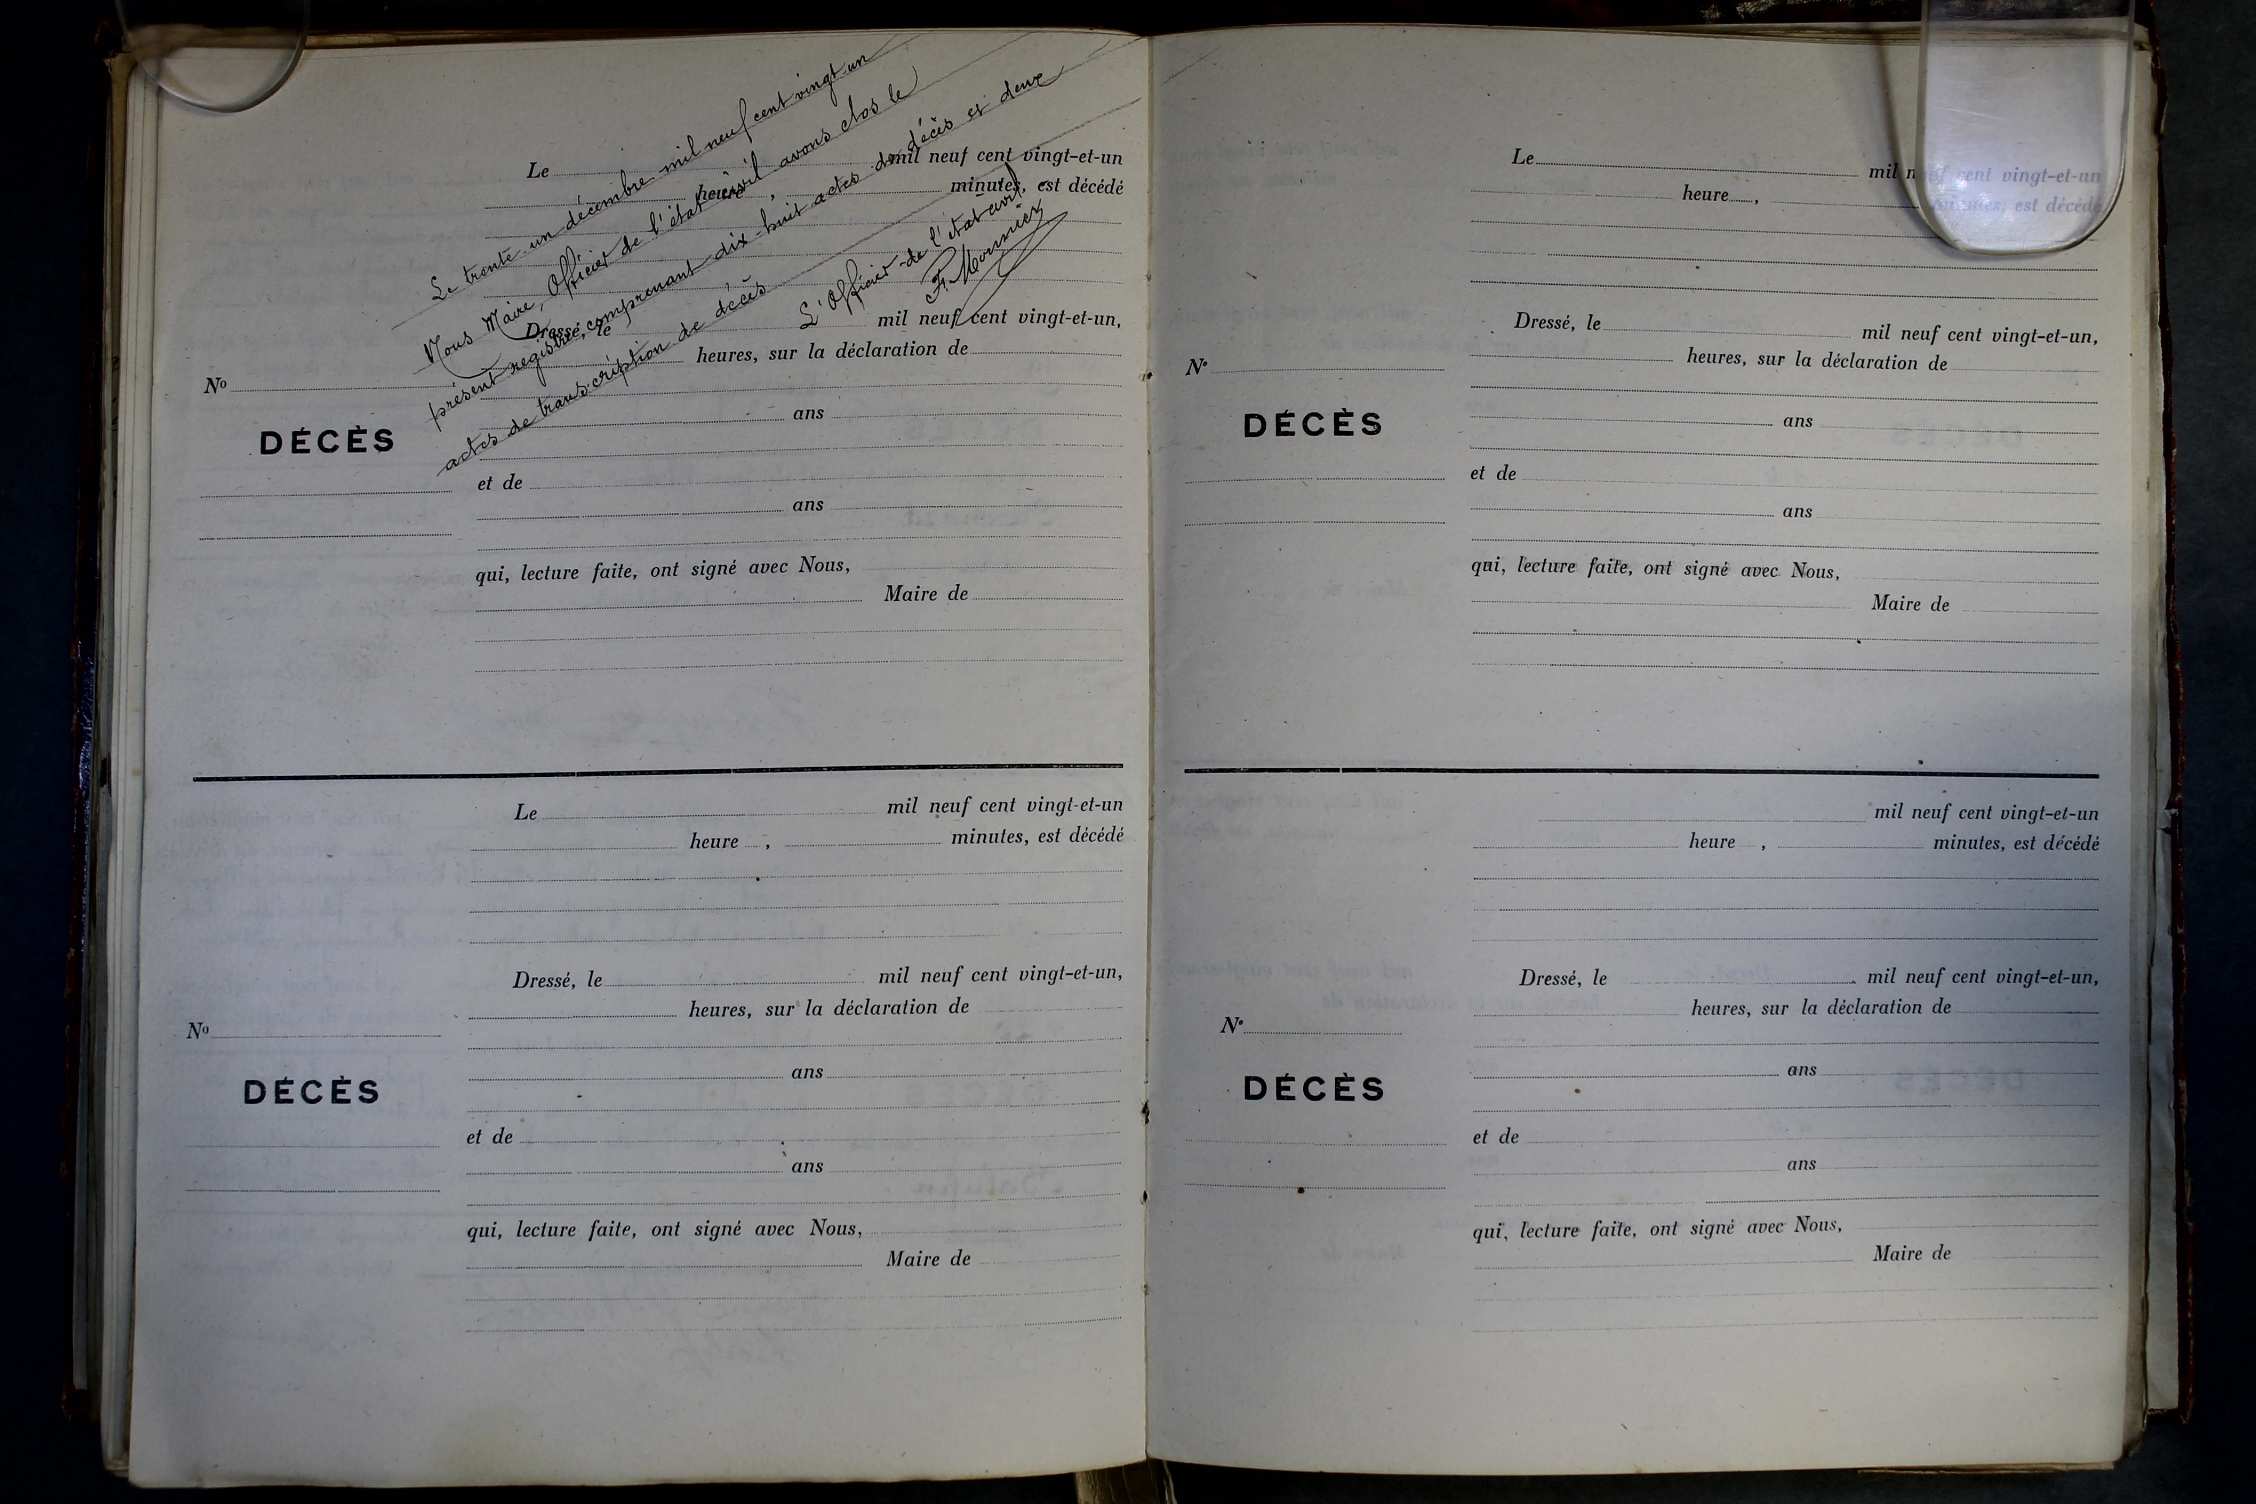 Le trente-un décembre mil neuf cent vingt un
Nous Maire, Officier de l'état civil avons clos le
présent registre, comprenant dix-huit actes de décès et deux
actes de transcription de décès
L'Officier de l'état civil
Le mil neuf cent vingt-et-un
heure , minutes, est décédé
Dressé, le mil neuf cent vingt-et-un,
heures, sur la déclaration de
No
ans
DÉCÈS
et de
ans
qui, lecture faite, ont signé avec Nous,
Maire de
Le mil neuf cent vingt-et-un
heure , minutes, est décédé
Dressé, le mil neuf cent vingt-et-un,
heures, sur la déclaration de
No
ans
DÉCÈS
et de
ans
qui, lecture faite, ont signé avec Nous,
Maire de
Le mil neuf cent vingt-et-un
heure , minutes, est décédé
Dressé, le mil neuf cent vingt-et-un,
heures, sur la déclaration de
No
ans
DÉCÈS
et de
ans
qui, lecture faite, ont signé avec Nous,
Maire de
mil neuf cent vingt-et-un
heure , minutes, est décédé
Dressé, le mil neuf cent vingt-et-un,
heures, sur la déclaration de
No
ans
DÉCÈS
et de
ans
qui, lecture faite, ont signé avec Nous,
Maire de